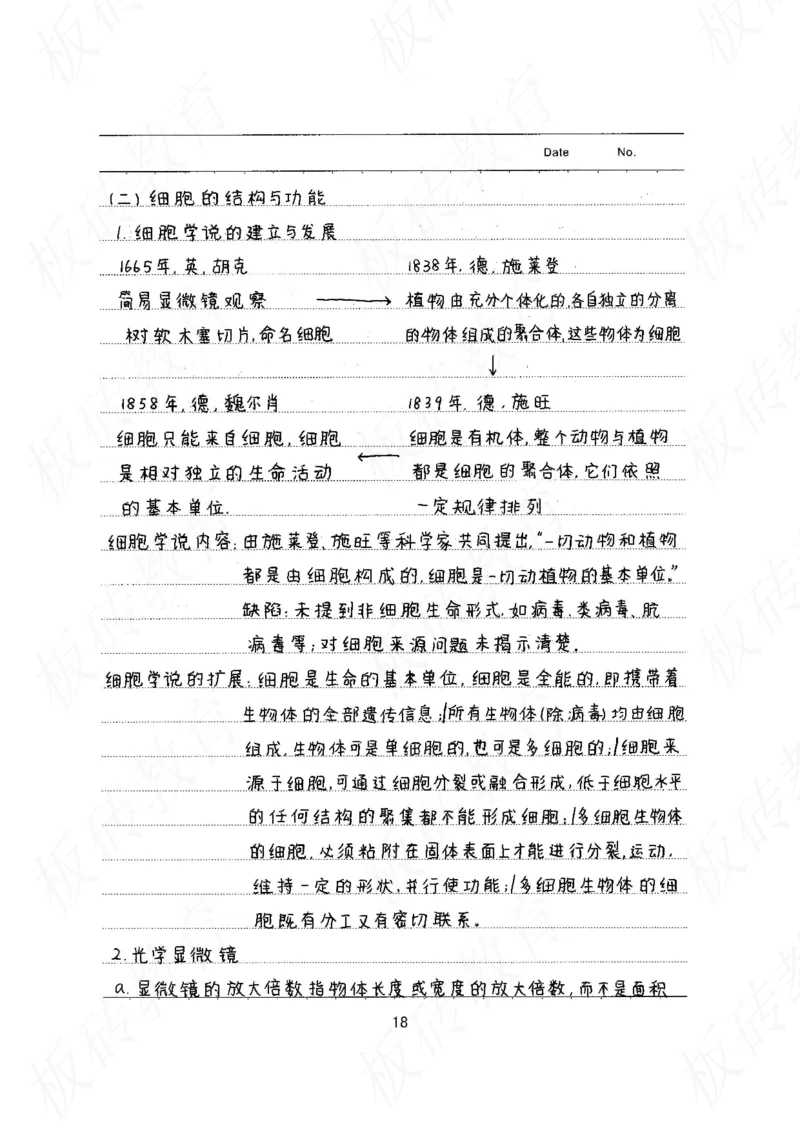 Date No.
(二)细胞的结构与功能
1.细胞学说的建立与发展
1665年,英,胡克 1838年,德,施莱登
简易显微镜观察 → 植物由充分个体化的,各自独立的分离
树软木塞切片,命名细胞 的物体组成的聚合体,这些物体为细胞
↓
1858年,德,魏尔肖 1839年,德,施旺
细胞只能来自细胞,细胞 细胞是有机体,整个动物与植物
是相对独立的生命活动 ← 都是细胞的聚合体,它们依照
的基本单位. 一定规律排列
细胞学说内容:由施莱登、施旺等科学家共同提出,“一切动物和植物
都是由细胞构成的,细胞是一切动植物的基本单位.”
缺陷:未提到非细胞生命形式,如病毒、类病毒、朊
病毒等;对细胞来源问题未揭示清楚。
细胞学说的扩展:细胞是生命的基本单位,细胞是全能的,即携带着
生物体的全部遗传信息;/所有生物体(除病毒)均由细胞
组成,生物体可是单细胞的,也可是多细胞的;/细胞来
源于细胞,可通过细胞分裂或融合形成,低于细胞水平
的任何结构的聚集都不能形成细胞;/多细胞生物体
的细胞,必须粘附在固体表面上才能进行分裂,运动,
维持一定的形状,并行使功能;/多细胞生物体的细
胞既有分工又有密切联系。
2.光学显微镜
a.显微镜的放大倍数指物体长度或宽度的放大倍数,而不是面积
18
板砖教育